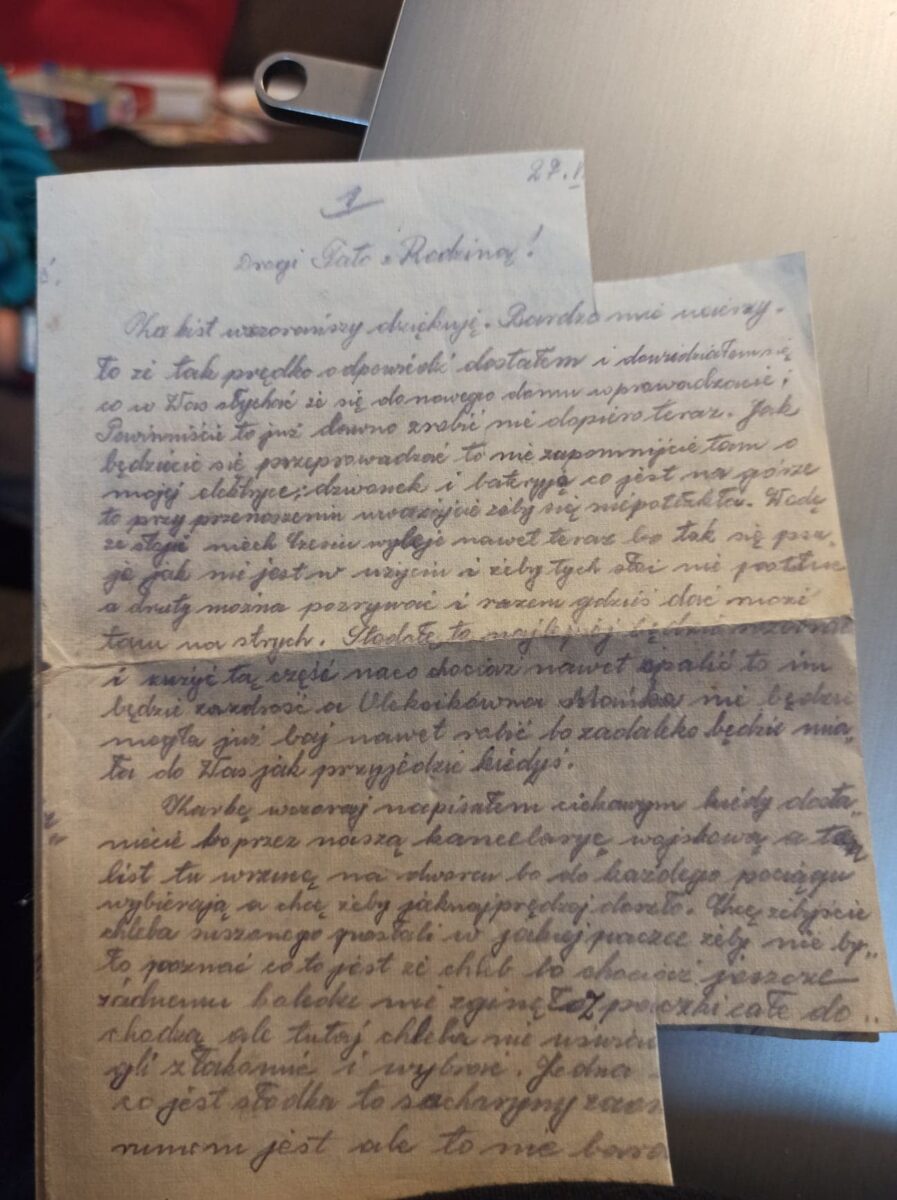 1
27.
Drogi Tato z Rodziną!
Za list wczorańszy dziękuję. Bardzo mnie ucieszy-
ło że tak prędko odpowiedź dostałem i dowiedziałem się
co u Was słychać że się do nowego domu wprowadzacie;
Powinniście to już dawno zrobić nie dopiero teraz. Jak
będziecie się przeprowadzać to nie zapomnijcie tam o
mojej elektryce; dzwonek i bateryją co jest na górze
to przy przenoszeniu uważajcie żeby się niepotłukła. Wodę
ze słojii niech Czesiu wyleje nawet teraz bo tak się psu-
je jak nie jest w użyciu i żeby tych słoi nie potłuc
a druty można pozrywać i razem gdzieś dać może
tam na strych. Stodołę to najlepiej będzie
i zużyć tą część naco chociaż nawet spalić to im
będzie zazdrość a Mańka nie będzie
mogła już baj nawet robić bo zadaleko będzie mia-
ła do Was jak przyjedzie kiedyś.
wczoraj napisałem ciekawym kiedy dosta-
niecie bo przez naszą kancelaryę wojskową a ten
list tu wrzucę na dworcu bo do każdego pociągu
wybierają a chcę żeby jaknajprędzej doszło. Chcę żebyście
chleba suszonego posłali w jakiej paczce żeby nie by-
ło poznać co to jest że chleb bo chociaż jeszcze
żadnemu koledze nie zginęło z paczki całe do-
chodzą ale tutaj chleba nie
gli złakomić i wybrać. Jedna
co jest słodka to sacharyny
rumem jest ale to nie